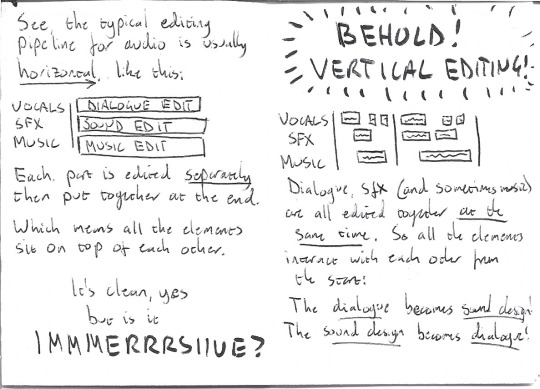 See, the typical editing
pipeline for audio is usually
horizontal, like this:
VOCALS DIALOGUE EDIT
SFX SOUND EDIT
MUSIC MUSIC EDIT
Each part is edited separately
then put together at the end.
Which means all the elements
sit on top of each other.
It's clean, yes
but is it
IMMMERRRSIIVE?
BEHOLD!
VERTICAL EDITING!
VOCALS
SFX
MUSIC
Dialogue, sfx (and sometimes music)
are all edited together at the
same time. So all the elements
interact with each other from
the start!
The dialogue becomes sound design!
The sound design becomes dialogue!